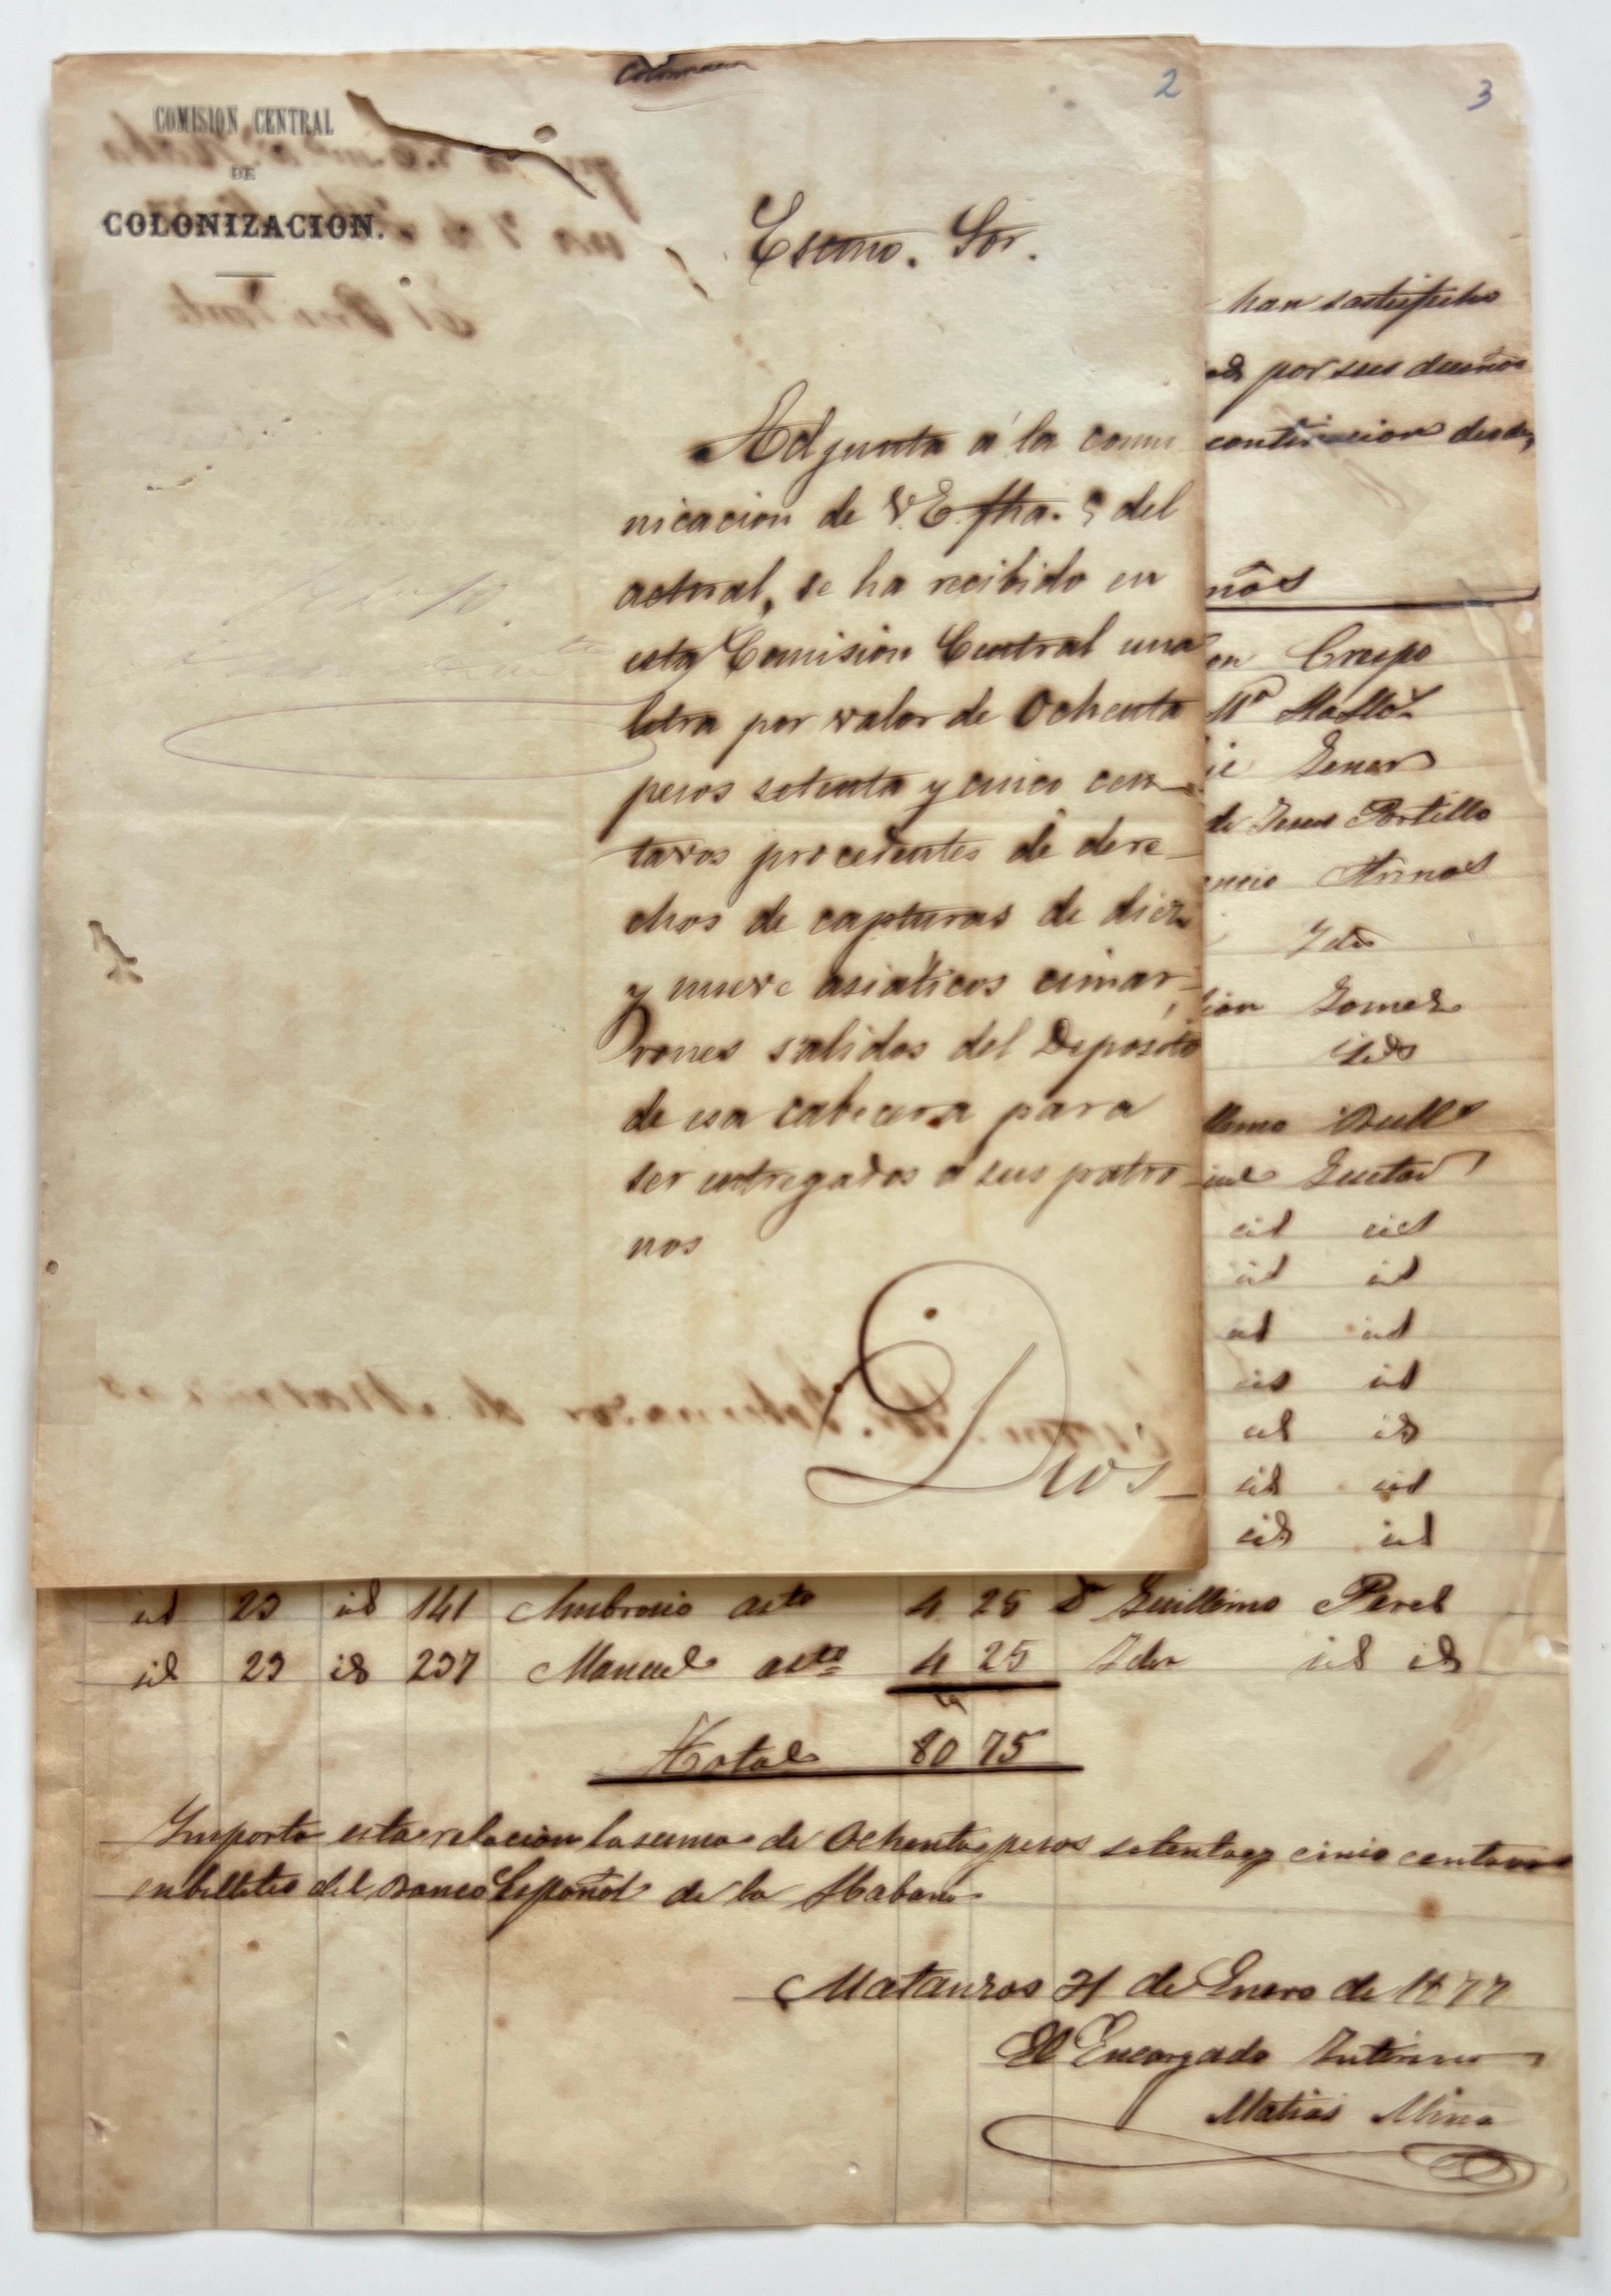 Colonizacion
2
COMISION CENTRAL
DE
COLONIZACION.
Escmo. Sor.
Adjunta á la comu
nicacion de V.E. fha. 9 del
actual, se ha recibido en
esta Comision Central una
letra por valor de Ochenta
pesos setenta y cinco cen-
tavos procedentes de dere-
chos de capturas de diez
y nueve asiáticos cimar-
rones salidos del Depósito
de esa cabecera para
ser entregados á sus patro-
nos
Dios
3
han satisfecho
por sus dueños
continuacion
Crespo
Mª
Gener
de Jesus Portillo
Armas
Ido
Gomez
id
id id
id id
id id
id id
id id
id id
id id
id 29 id 141 Ambrosio asto 4 25 Dn Guillermo Perez
id 29 id 237 Manuel asto 4 25 Idn id id
Total 80 75
Importa esta relacion la suma de Ochenta pesos setenta y cinco centavos
en billetes del Banco Español de la Habana
Matanzas 31 de Enero de 1877
El Encargado Interino
Matias Mina